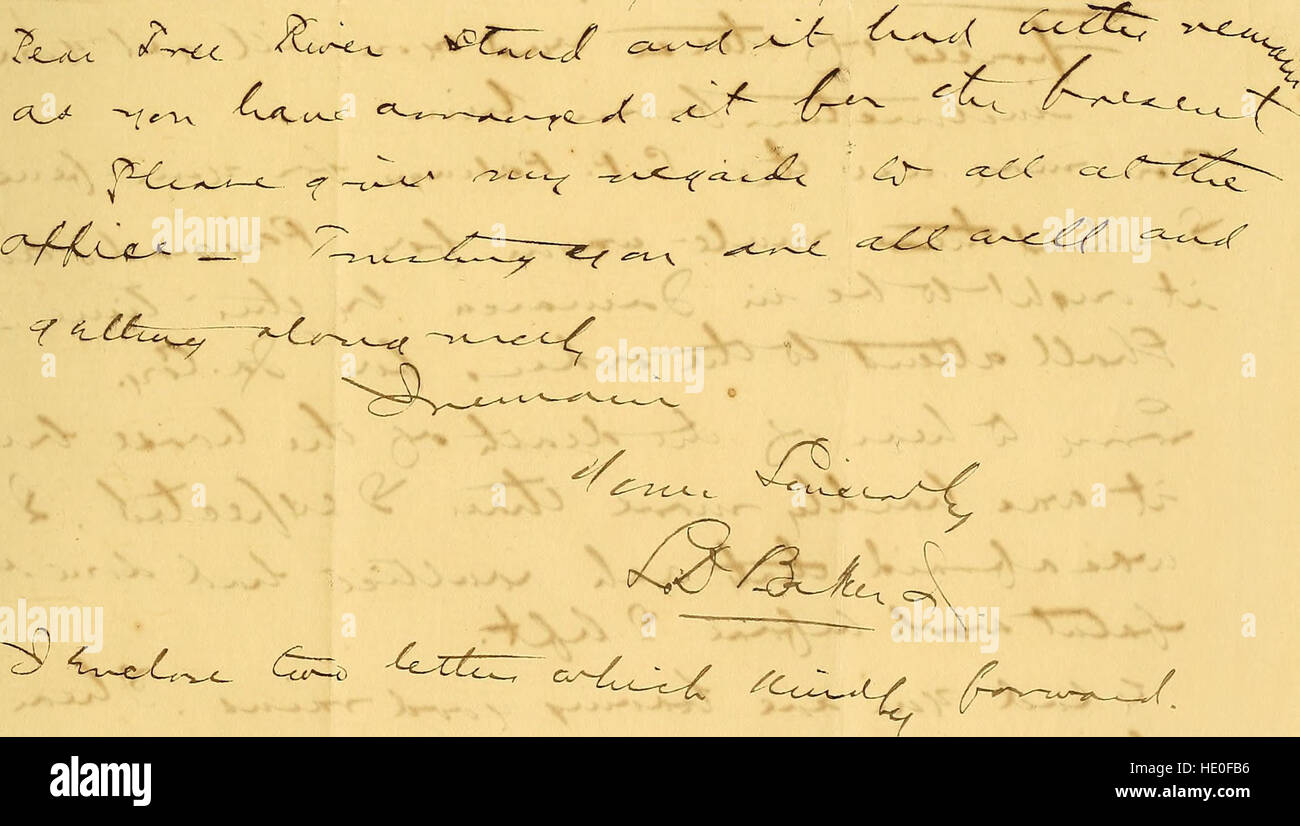 Pear Tree River stand and it had better remain
as you have arranged it for the present
Please give my regards to all at the
office – Trusting you are all well and
getting along nicely
I remain
Yours Sincerely
L.D Baker Jr
I enclose two letters which kindly forward.
a alamy stock photo
HE0FB6
www.alamy.com